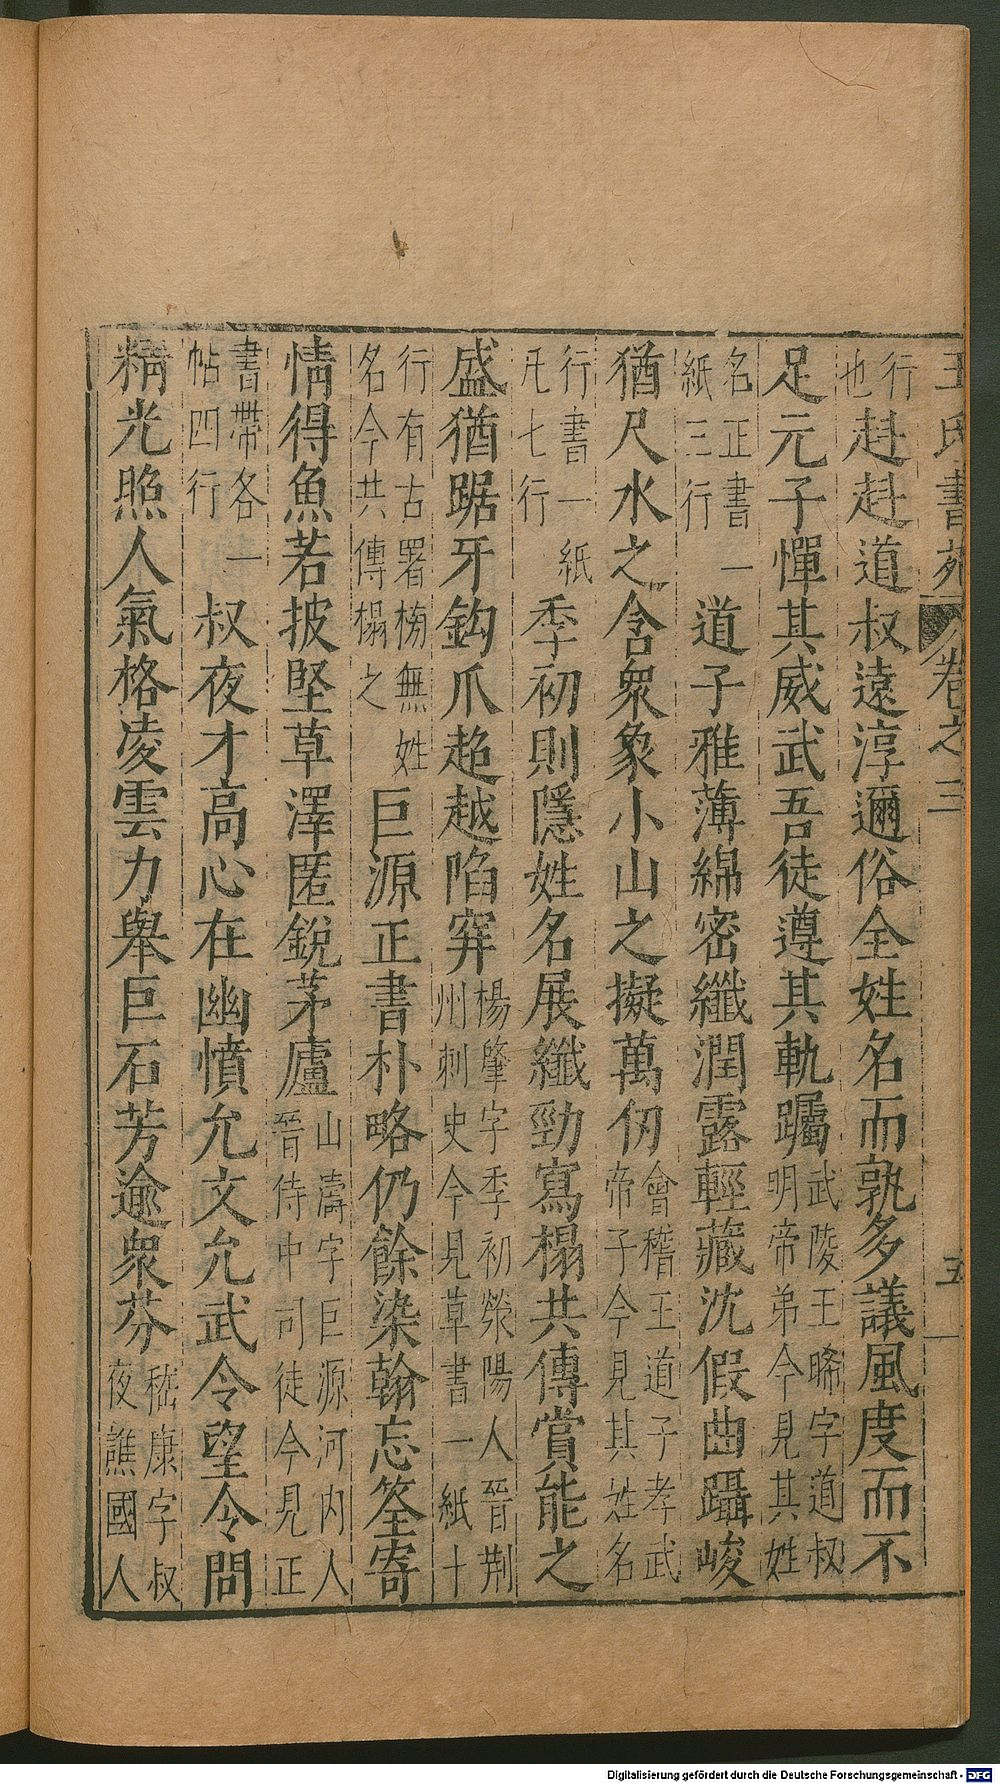 王氏書苑 卷之三 五
行也赳赳道叔遠淳邇俗全姓名而孰多議風度而不
足元子憚其威武吾徒遵其軌躅武陵王晞字道叔明帝弟今見其姓
名正書一紙三行道子雅薄綿密纖潤露輕藏沈假曲躡峻
猶尺水之含衆象小山之擬萬仞會稽王道子孝武帝子今見其姓名
行書一紙凡七行季初則隱姓名展纖勁寫榻共傳賞能之
盛猶踞牙鈎爪超越陷穽楊肇字季初滎陽人晉荆州刺史今見草書一紙十
行有古署榜無姓名今共傳榻之巨源正書朴略仍餘染翰忘筌寄
情得魚若披堅草澤匿銳茅廬山濤字巨源河内人晉侍中司徒今見正
書帶名一帖四行叔夜才高心在幽憤允文允武令望令問
精光照人氣格凌雲力舉巨石芳逾衆芬嵇康字叔夜譙國人
Digitalisierung gefördert durch die Deutsche Forschungsgemeinschaft - DFG